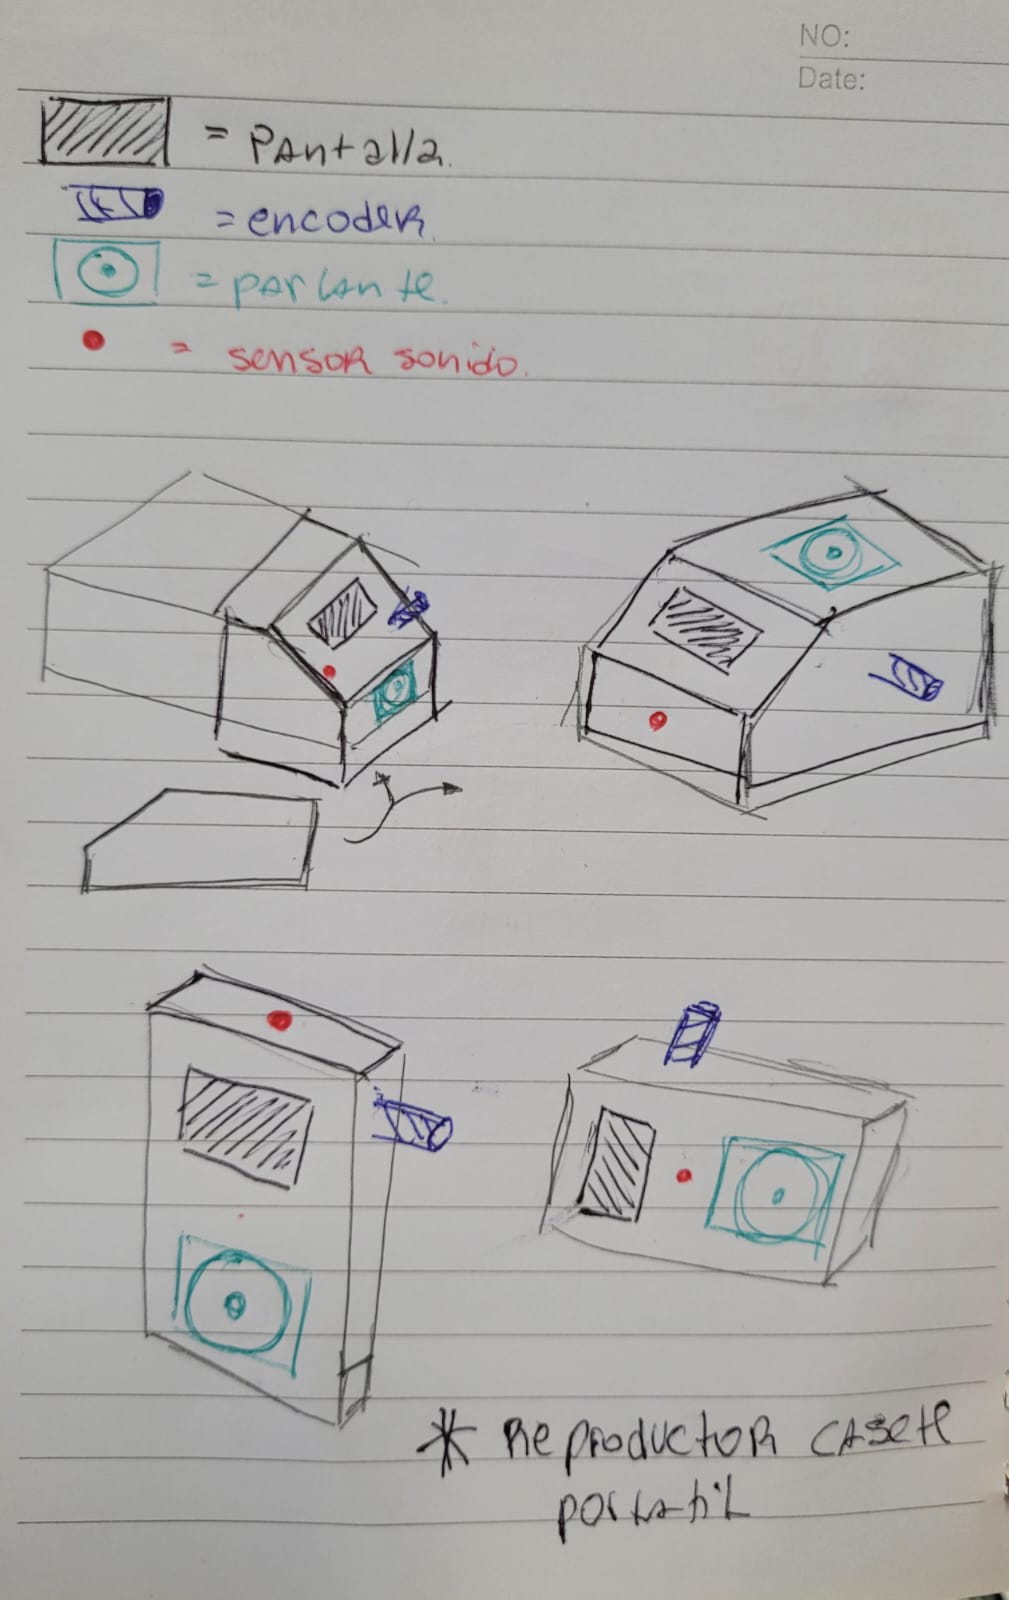 NO:
Date:
= PANtalla.
= encodeR.
= parlante.
= sensoR sonido.
* RepRoductoR casete
portatil